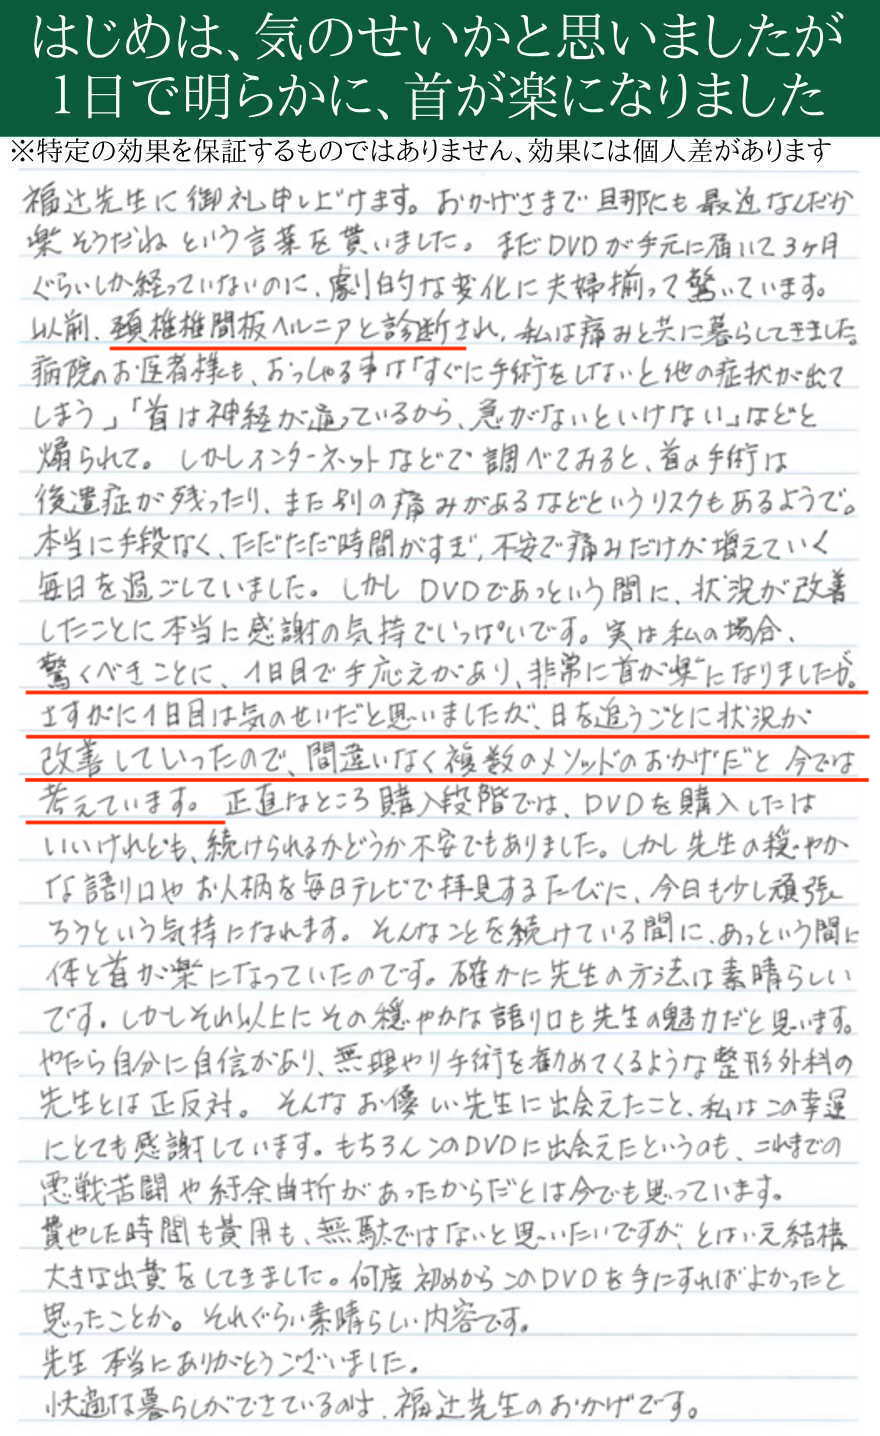 はじめは、気のせいかと思いましたが
1日で明らかに、首が楽になりました
※特定の効果を保証するものではありません、効果には個人差があります
福辻先生に御礼申し上げます。おかげさまで旦那にも最近なんだか
楽そうだねという言葉を貰いました。まだDVDが手元に届いて3ヶ月
ぐらいしか経っていないのに、劇的な変化に夫婦揃って驚いています。
以前、頚椎椎間板ヘルニアと診断され、私は痛みと共に暮らしてきました。
病院のお医者様も、おっしゃる事は「すぐに手術をしないと他の症状が出て
しまう」「首は神経が通っているから、急がないといけない」などと
煽られて。しかしインターネットなどで調べておると、首の手術は
後遺症が残ったり、また別の痛みがあるなどというリスクもあるようで。
本当に手段なく、ただただ時間がすぎ、不安で痛みだけが増えていく
毎日を過ごしていました。しかしDVDであっという間に、状況が改善
したことに本当に感謝の気持でいっぱいです。実は私の場合、
驚くべきことに、1日目で手応えがあり、非常に首が楽になりましたが。
さすがに1日目は気のせいだと思いましたが、日を追うごとに状況が
改善していったので、間違いなく複数のメソッドのおかげだと今では
考えています。正直なところ購入段階では、DVDを購入したは
いいけれども、続けられるかどうか不安でもありました。しかし先生の穏やか
な語り口やお人柄を毎日テレビで拝見するたびに、今日も少し頑張
ろうという気持になれます。そんなことを続けている間に、あっという間に
体と首が楽になっていたのです。確かに先生の方法は素晴らしい
です。しかしそれ以上にその穏やかな語り口も先生の魅力だと思います。
やたら自分に自信があり、無理やり手術を勧めてくるような整形外科の
先生とは正反対。そんなお優しい先生に出会えたこと、私はこの幸運
にとても感謝しています。もちろんこのDVDに出会えたというのも、これまでの
悪戦苦闘や紆余曲折があったからだとは今でも思っています。
費やした時間も費用も、無駄ではないと思いたいですが、とはいえ結構
大きな出費をしてきました。何度初めからこのDVDを手にすればよかったと
思ったことか。それぐらい素晴らしい内容です。
先生本当にありがとうございました。
快適な暮らしができているのは、福辻先生のおかげです。